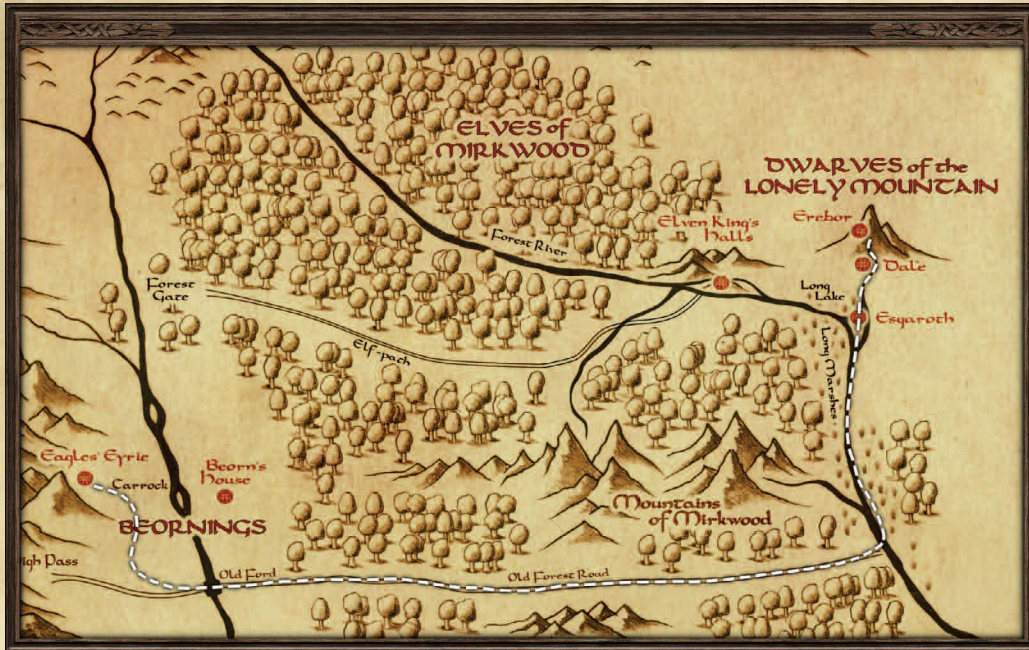 ELVES of
MIRKWOOD
DWARVES of the
LONELY MOUNTAIN
Erebor
Elven King's
Halls
Dale
Forest River
Forest
Gate
Long
Lake
Esgaroth
Elf-path
Long Marshes
Eagles' Eyrie
Carrock
Beorn's
House
BEORNINGS
Mountains
of Mirkwood
igh Pass
Old Ford
Old Forest Road